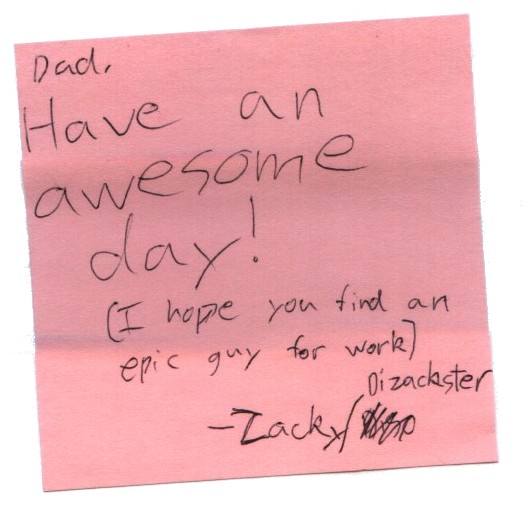 Dad,
Have an
awesome
day!
(I hope you find an
epic guy for work)
Dizackster
-Zacky/